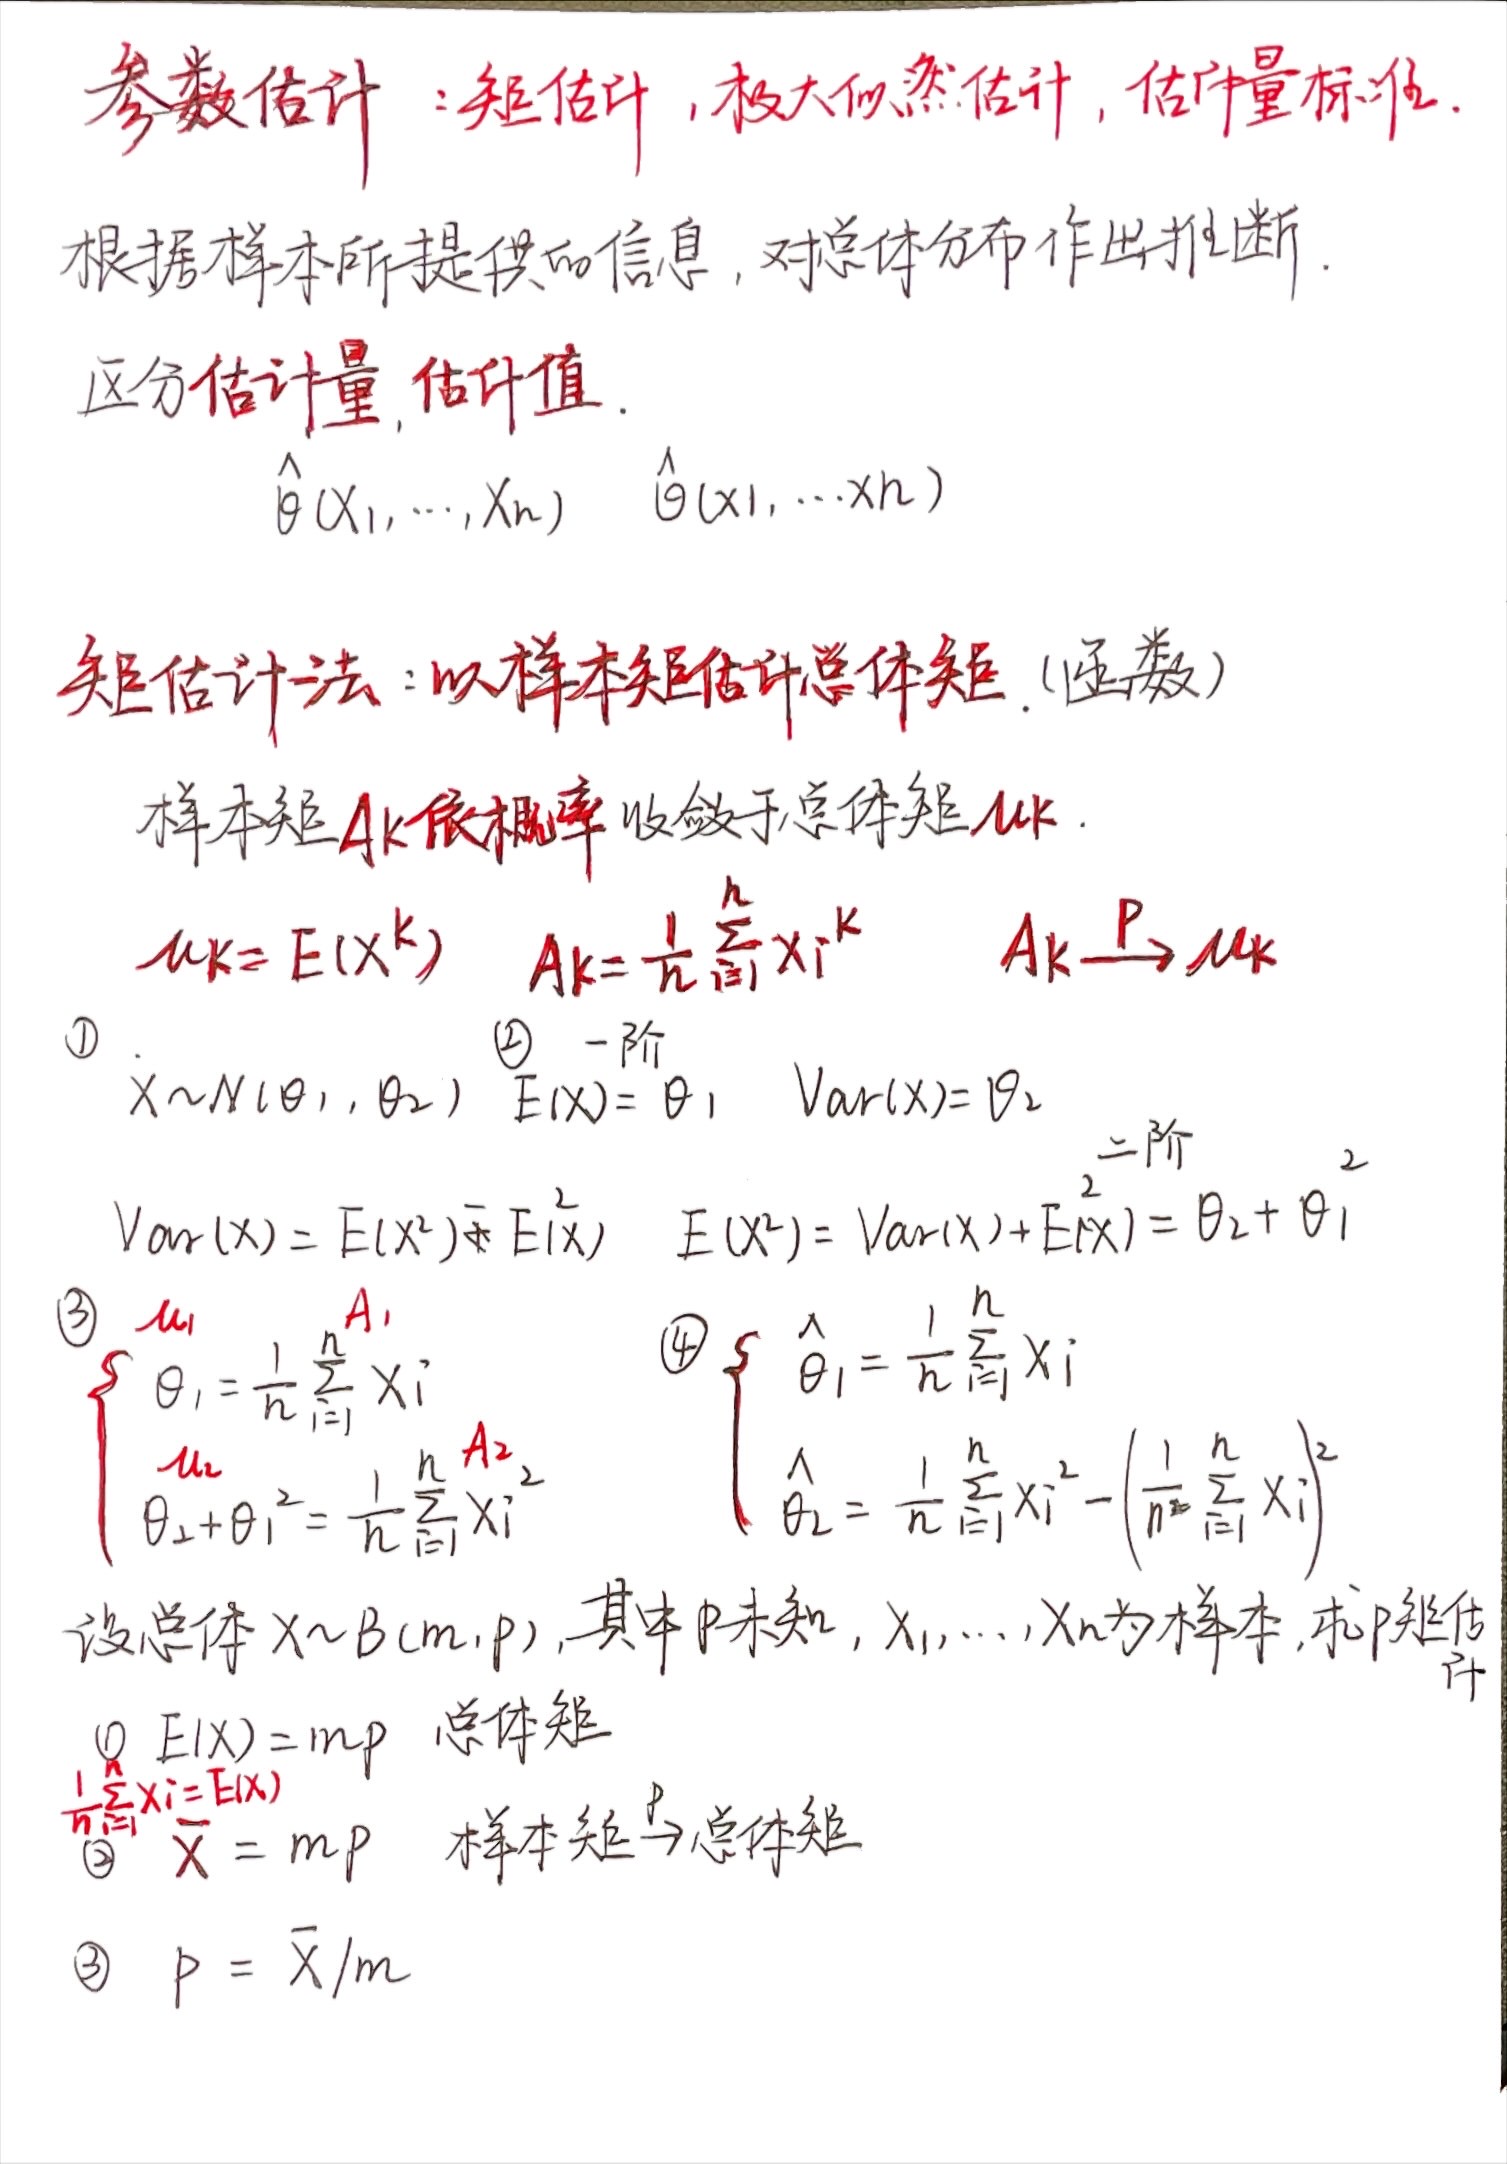 参数估计：矩估计，极大似然估计，估计量标准.
根据样本所提供的信息，对总体分布作出推断.
区分估计量，估计值.
θ̂(X₁,…,Xn)  θ̂(x1,…xn)
矩估计法：以样本矩估计总体矩.(函数)
样本矩Ak依概率收敛于总体矩μk.
μk=E(X^k)  Ak=1/n Σ_{i=1}^{n} Xi^k  Ak →^P μk
① ② 一阶
X~N(θ₁,θ₂) E(X)=θ₁ Var(X)=θ₂
二阶
Var(X)=E(X²)-E²(X)  E(X²)=Var(X)+E²(X)=θ₂+θ₁²
③ μ₁ A₁ ④
θ₁=1/n Σ_{i=1}^{n} Xi  θ̂₁=1/n Σ_{i=1}^{n} Xi
μ₂ A₂
θ₂+θ₁²=1/n Σ_{i=1}^{n} Xi²  θ̂₂=1/n Σ_{i=1}^{n} Xi²-(1/n Σ_{i=1}^{n} Xi)²
设总体X~B(m,p),其中p未知，X₁,…,Xn为样本，求p矩估计
① E(X)=mp 总体矩
1/n Σ_{i=1}^{n} Xi=E(X)
② X̄=mp 样本矩 →^P 总体矩
③ p=X̄/m